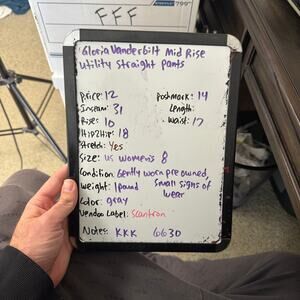 FFF
Gloria Vanderbilt Mid Rise
Utility Straight Pants
Price: 12
Postmark: 14
Inseam: 31
Length:
Rise: 10
Waist: 17
Hip2Hip: 18
Stretch: Yes
Size: US women's 8
Condition: Gently worn pre owned,
small signs of
wear
Weight: 1 pound
Color: gray
Vendoo Label: Scantron
Notes: KKK 6630